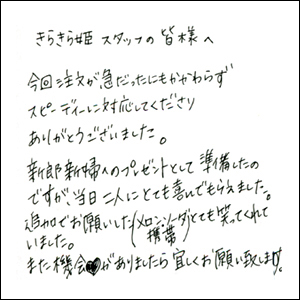 きらきら姫 スタッフの皆様へ
今回注文が急だったにもかかわらず
スピーディーに対応してくださり
ありがとうございました。
新郎新婦へのプレゼントとして準備したの
ですが当日二人にとても喜んでもらえました。
追加でお願いした(メロンソーダ携帯)とても笑ってくれて
いました。
また機会がありましたら宜しくお願い致します。